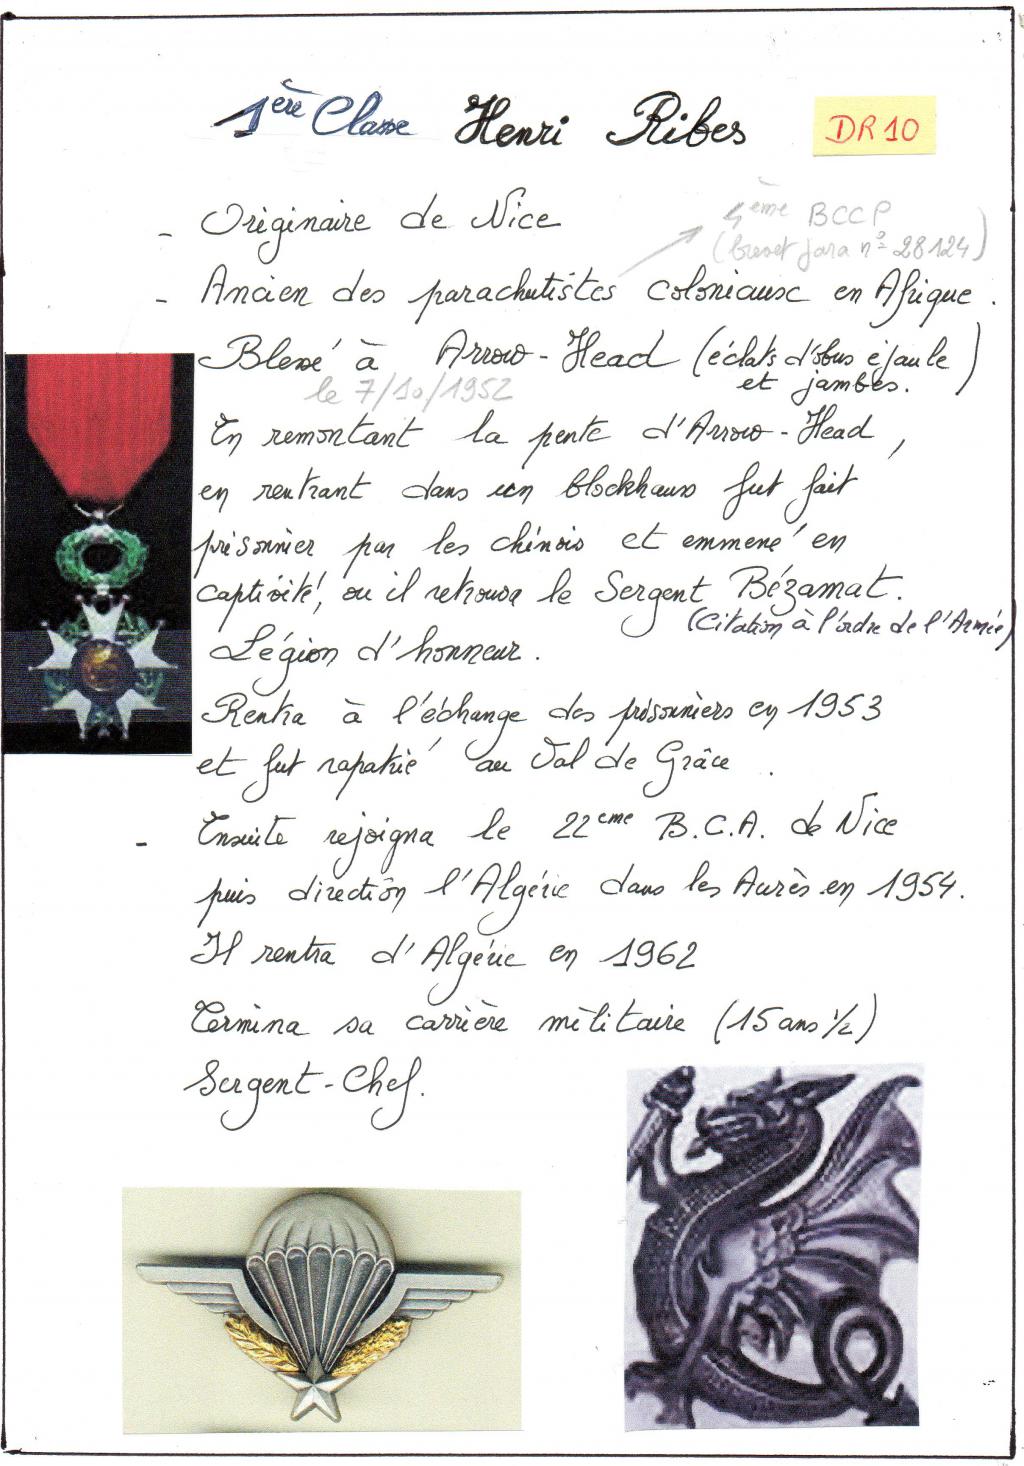 1ère Classe Henri Ribes
DR 10
- Originaire de Nice
4ème BCCP
(brevet para n° 28124)
- Ancien des parachutistes coloniaux en Afrique.
Blessé à Arrow-Head (éclats d'obus épaule
et jambes.)
le 7/10/1952
En remontant la pente d'Arrow-Head,
en rentrant dans un blockhaus fut fait
prisonnier par les chinois et emmené en
captivité, ou il retrouva le Sergent Bézamat.
(Citation à l'ordre de l'Armée)
Légion d'honneur.
Rentra à l'échange des prisonniers en 1953
et fut rapatrié au Val de Grâce.
- Ensuite rejoigna le 22eme B.C.A. de Nice
puis direction l'Algérie dans les Aurès en 1954.
Il rentra d'Algérie en 1962
Termina sa carrière militaire (15 ans 1/2)
Sergent-Chef.